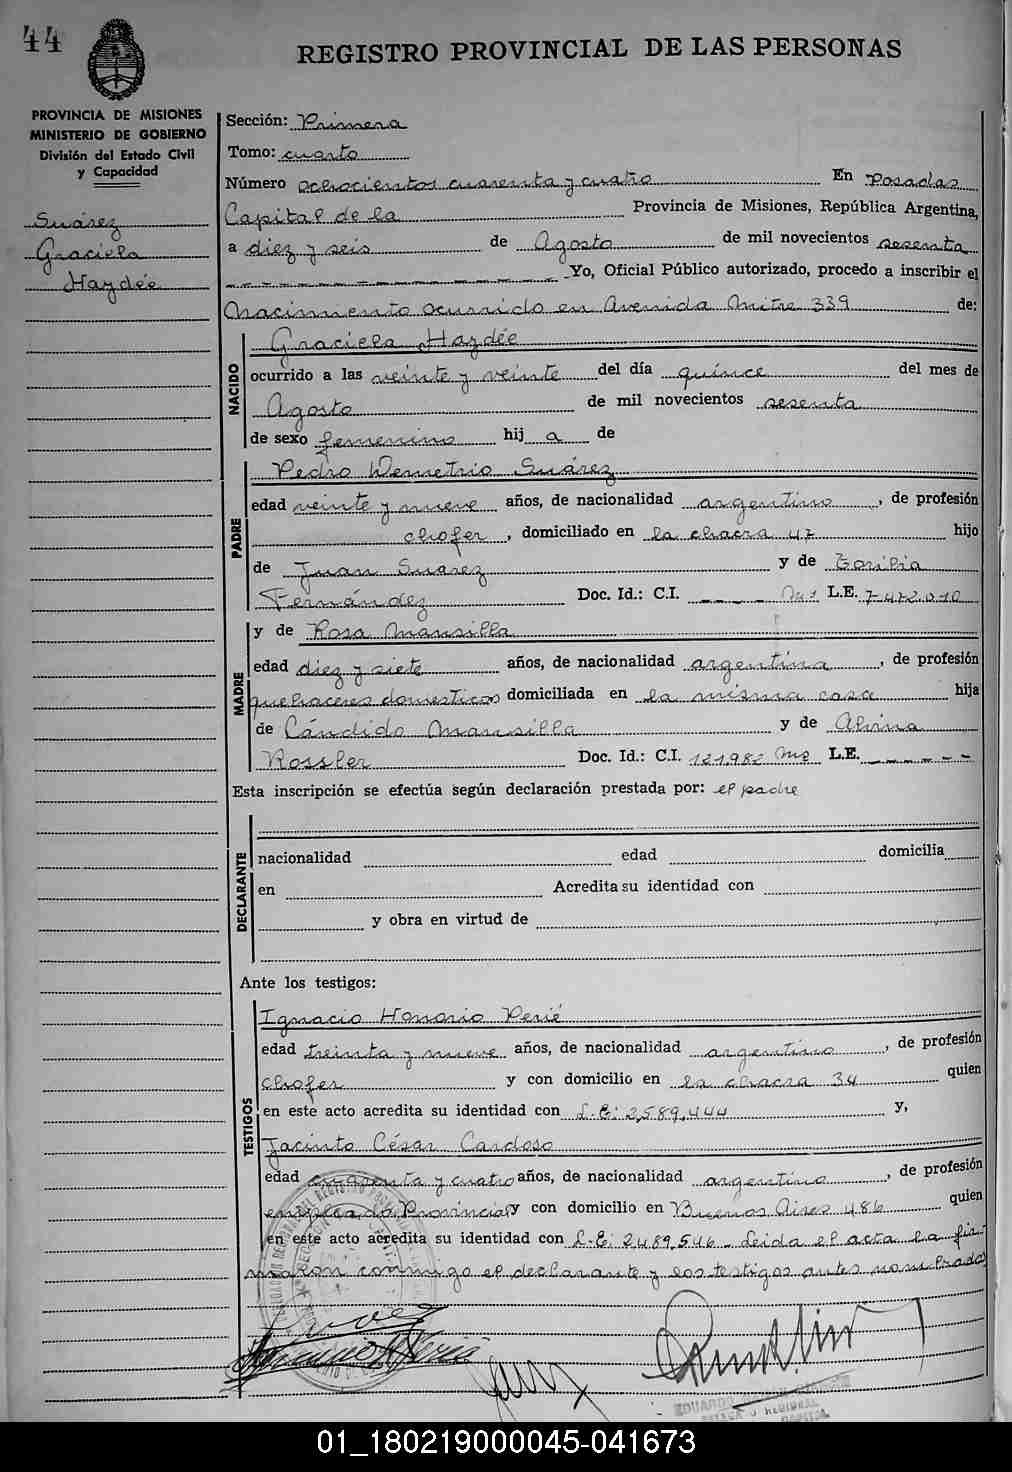 44
REGISTRO PROVINCIAL DE LAS PERSONAS
PROVINCIA DE MISIONES
MINISTERIO DE GOBIERNO
División del Estado Civil
y Capacidad
Suárez
Graciela
Haydée
Sección: Primera
Tomo: cuarto
Número ochocientos cuarenta y cuatro En Posadas
Capital de la Provincia de Misiones, República Argentina,
a diez y seis de Agosto de mil novecientos sesenta
Yo, Oficial Público autorizado, procedo a inscribir el
Nacimiento ocurrido en Avenida Mitre 339 de:
NACIDO
Graciela Haydée
ocurrido a las veinte y veinte del día quince del mes de
Agosto de mil novecientos sesenta
de sexo femenino hij a de
PADRE
Pedro Demetrio Suárez
edad veinte y nueve años, de nacionalidad argentino, de profesión
chofer, domiciliado en la chacra 47 hijo
de Juan Suarez y de
Fernández Doc. Id.: C.I. L.E. 7.472.010
MADRE
y de Rosa Mansilla
edad diez y siete años, de nacionalidad argentina, de profesión
quehaceres domesticos domiciliada en la misma casa hija
de Cándido Mansilla y de Alvina
Rossler Doc. Id.: C.I. 121982 L.E.
Esta inscripción se efectúa según declaración prestada por: el padre
DECLARANTE
nacionalidad edad domicilia
en Acredita su identidad con
y obra en virtud de
Ante los testigos:
TESTIGOS
Ignacio Honorio Perié
edad treinta y nueve años, de nacionalidad argentino, de profesión
chofer y con domicilio en la chacra 34 quien
en este acto acredita su identidad con L.E: 2,589,444 y,
Jacinto César Cardoso
edad y cuatro años, de nacionalidad argentino, de profesión
empleado Provincial y con domicilio en Buenos Aires 486 quien
en este acto acredita su identidad con L.E: 2489.546. Leida el acta la fir-
maron conmigo el declarante y los testigos antes nombrados
01_180219000045-041673